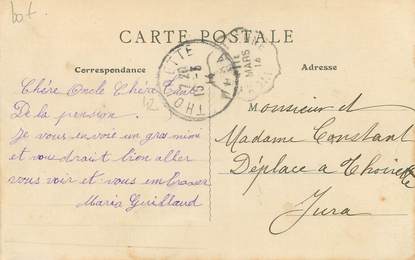 bof.
CARTE POSTALE
Correspondance
Adresse
THOIRETTE
20
15-3
14
MARS
14
Chère Oncle Chère Tante
De la pension.
Je vous envoie un gros mimi
et voudrait bien aller
vous voir et vous embrasser
Maria Guilland
12
Monsieur et
Madame Constant
Déplace a Thoirette
Jura